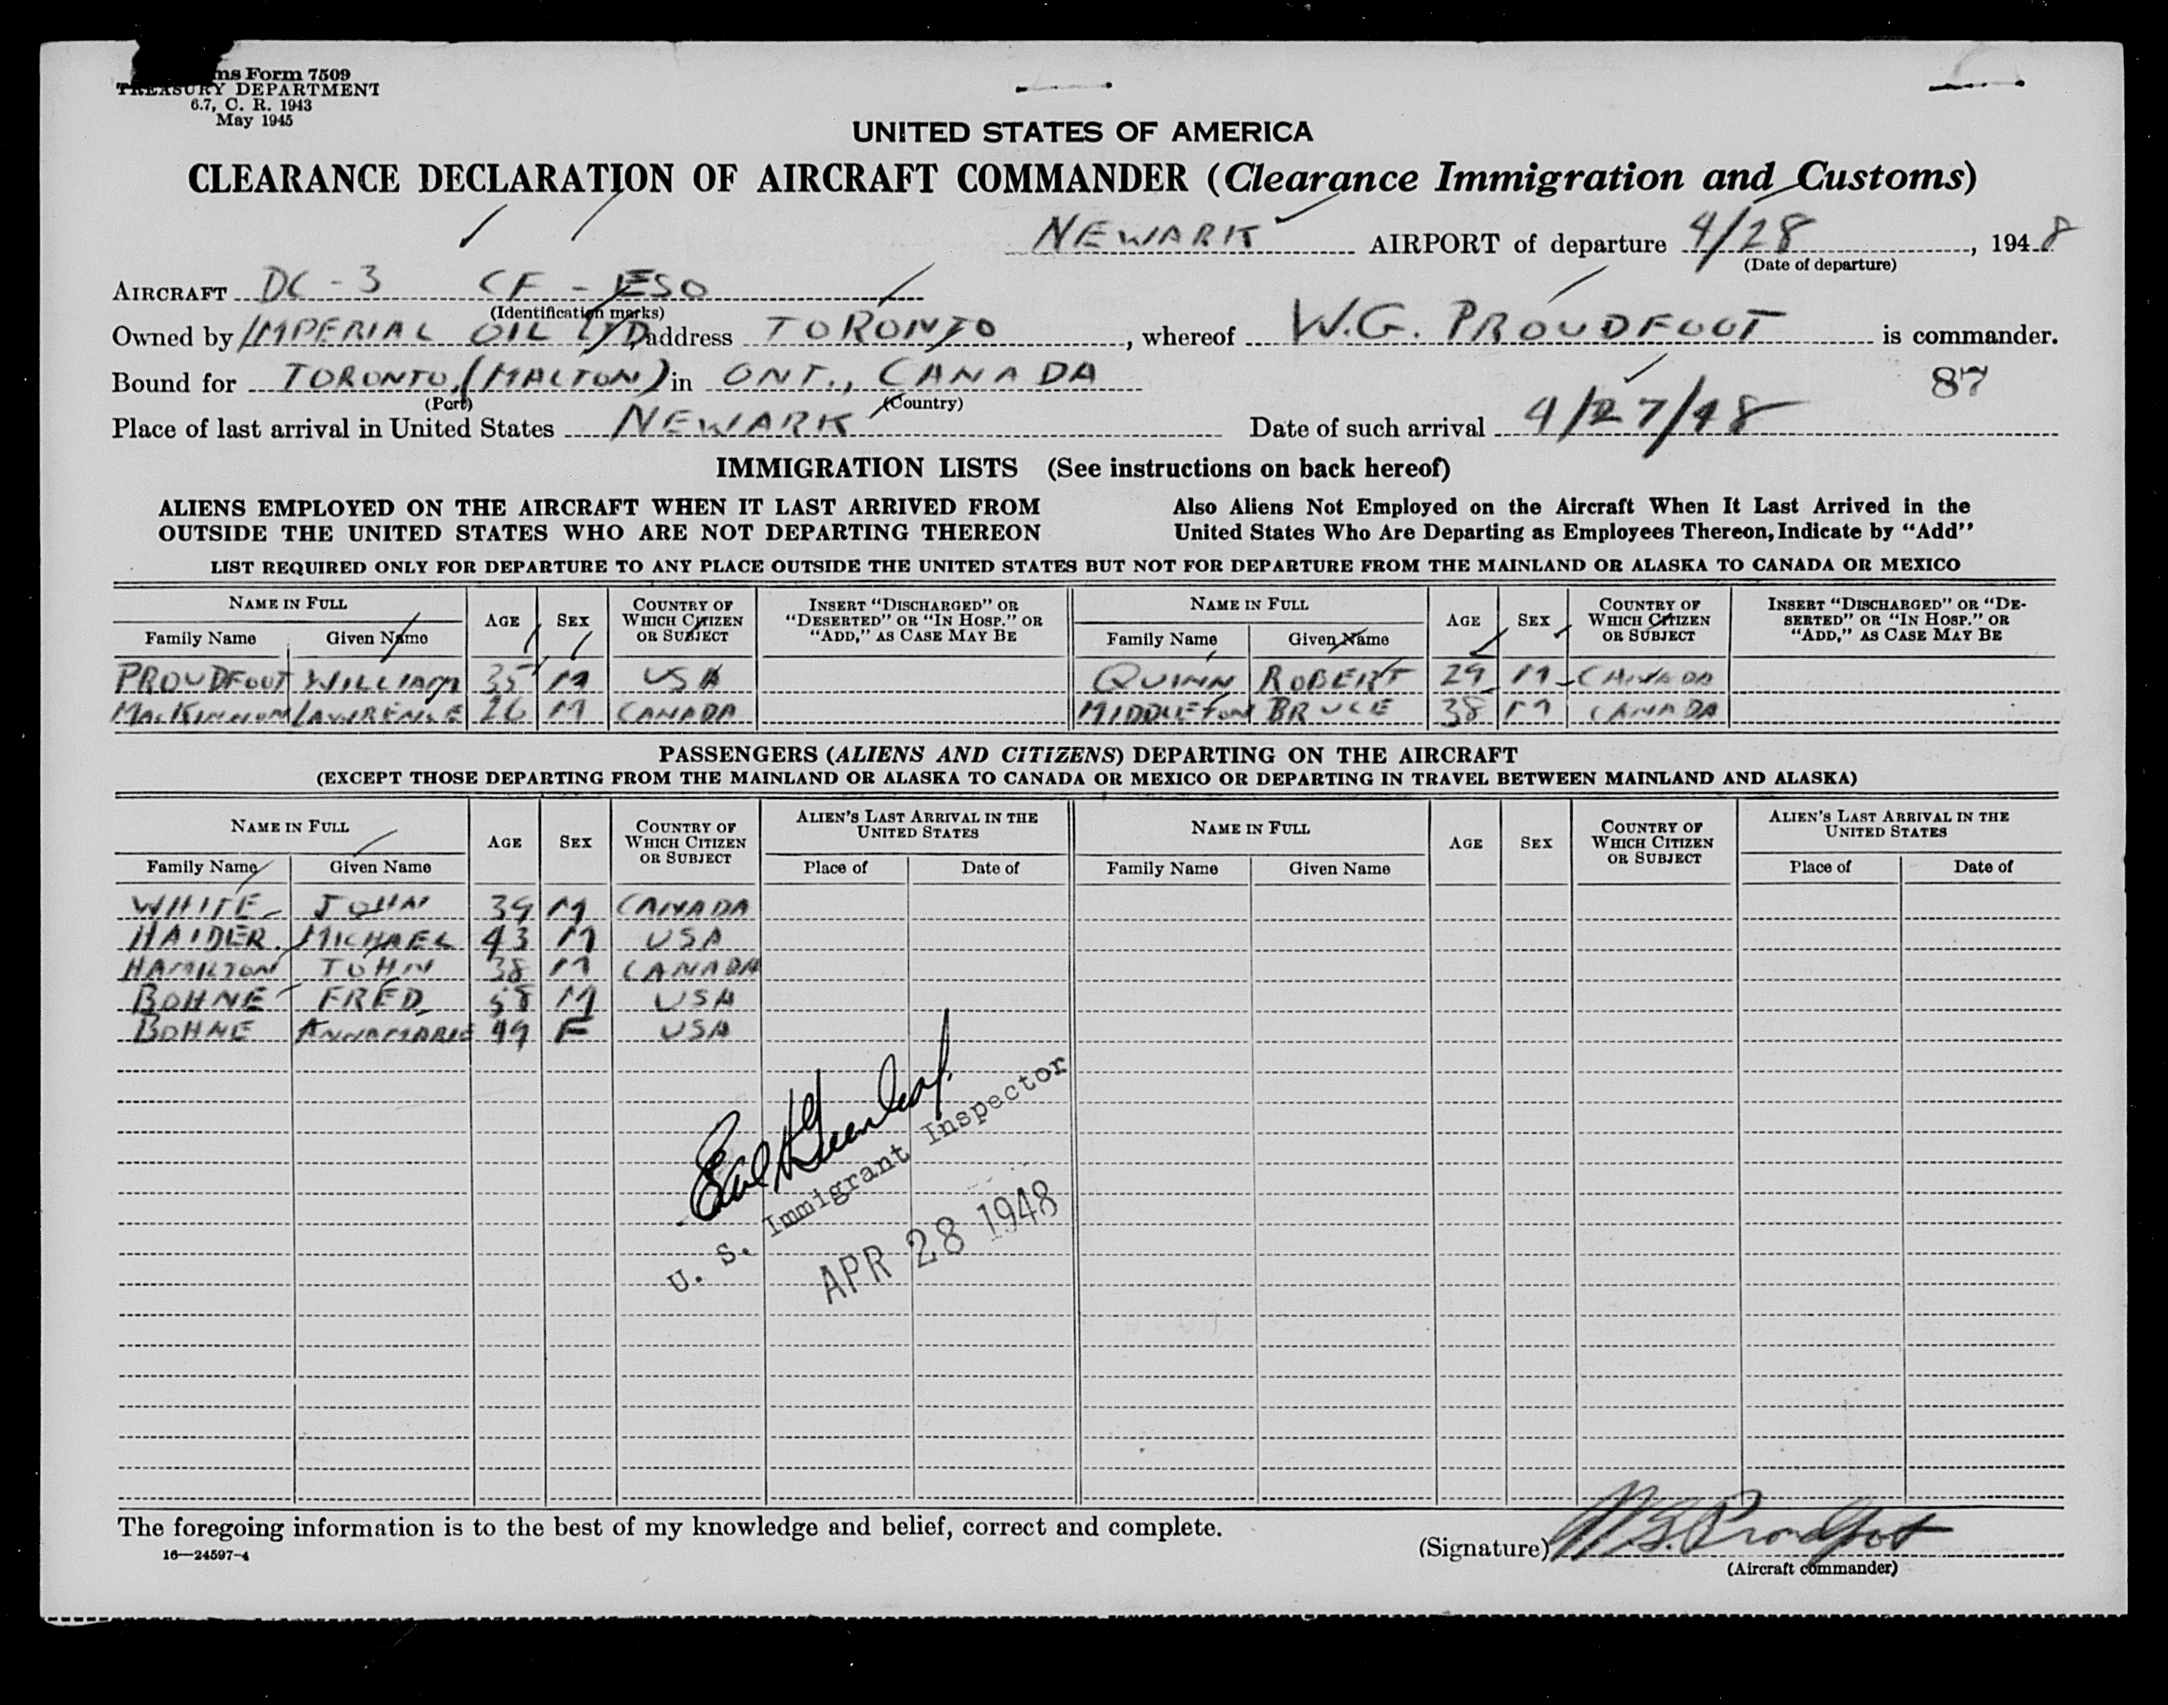 ms Form 7509
TREASURY DEPARTMENT
6.7, C. R. 1943
May 1945
UNITED STATES OF AMERICA
CLEARANCE DECLARATION OF AIRCRAFT COMMANDER (Clearance Immigration and Customs)
NEWARK AIRPORT of departure 4/28, 1948
(Date of departure)
AIRCRAFT DC-3 CF-ESO
(Identification marks)
Owned by IMPERIAL OIL LTD, address TORONTO, whereof W.G. PROUDFOOT is commander.
Bound for TORONTO, (MALTON) in ONT., CANADA 87
(Port) (Country)
Place of last arrival in United States NEWARK Date of such arrival 4/27/48
IMMIGRATION LISTS (See instructions on back hereof)
ALIENS EMPLOYED ON THE AIRCRAFT WHEN IT LAST ARRIVED FROM Also Aliens Not Employed on the Aircraft When It Last Arrived in the
OUTSIDE THE UNITED STATES WHO ARE NOT DEPARTING THEREON United States Who Are Departing as Employees Thereon, Indicate by "Add"
LIST REQUIRED ONLY FOR DEPARTURE TO ANY PLACE OUTSIDE THE UNITED STATES BUT NOT FOR DEPARTURE FROM THE MAINLAND OR ALASKA TO CANADA OR MEXICO
NAME IN FULL AGE SEX COUNTRY OF WHICH CITIZEN OR SUBJECT INSERT "DISCHARGED" OR "DESERTED" OR "IN HOSP." OR "ADD," AS CASE MAY BE NAME IN FULL AGE SEX COUNTRY OF WHICH CITIZEN OR SUBJECT INSERT "DISCHARGED" OR "DESERTED" OR "IN HOSP." OR "ADD," AS CASE MAY BE
Family Name Given Name Family Name Given Name
PROUDFOOT WILLIAM 35 M USA QUINN ROBERT 29 M CANADA
MACKINNON LAWRENCE 26 M CANADA MIDDLETON BRUCE 38 M CANADA
PASSENGERS (ALIENS AND CITIZENS) DEPARTING ON THE AIRCRAFT
(EXCEPT THOSE DEPARTING FROM THE MAINLAND OR ALASKA TO CANADA OR MEXICO OR DEPARTING IN TRAVEL BETWEEN MAINLAND AND ALASKA)
NAME IN FULL AGE SEX COUNTRY OF WHICH CITIZEN OR SUBJECT ALIEN'S LAST ARRIVAL IN THE UNITED STATES NAME IN FULL AGE SEX COUNTRY OF WHICH CITIZEN OR SUBJECT ALIEN'S LAST ARRIVAL IN THE UNITED STATES
Family Name Given Name Place of Date of Family Name Given Name Place of Date of
WHITE JOHN 39 M CANADA
HAIDER MICHAEL 43 M USA
HAMILTON JOHN 38 M CANADA
BOHNE FRED 58 M USA
BOHNE ANNAMARIE 49 F USA
Earl H Greenleaf
U. S. Immigrant Inspector
APR 28 1948
The foregoing information is to the best of my knowledge and belief, correct and complete.
16—24597-4
(Signature) W.G. Proudfoot
(Aircraft commander)